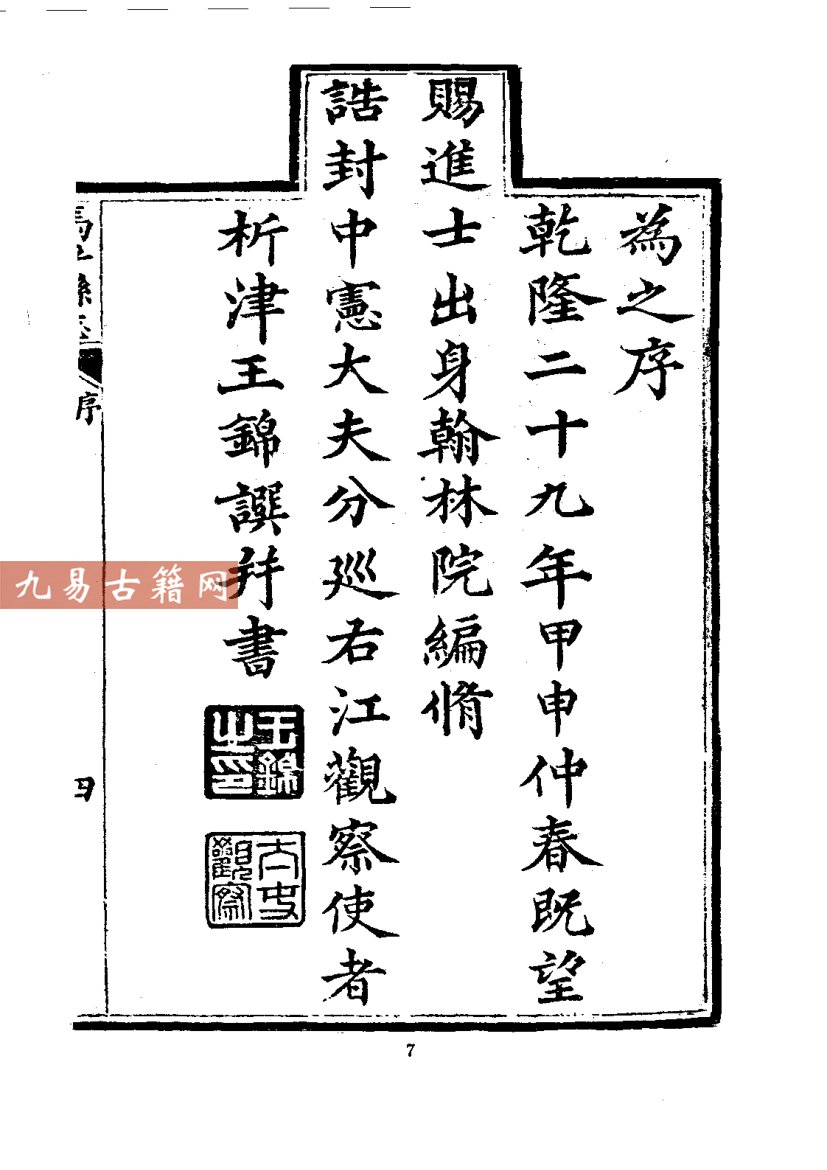 為之序
乾隆二十九年甲申仲春既望
賜進士出身翰林院編脩
誥封中憲大夫分廵右江觀察使者
析津王錦譔幷書
王錦之印
太史觀察
序
九易古籍网
7